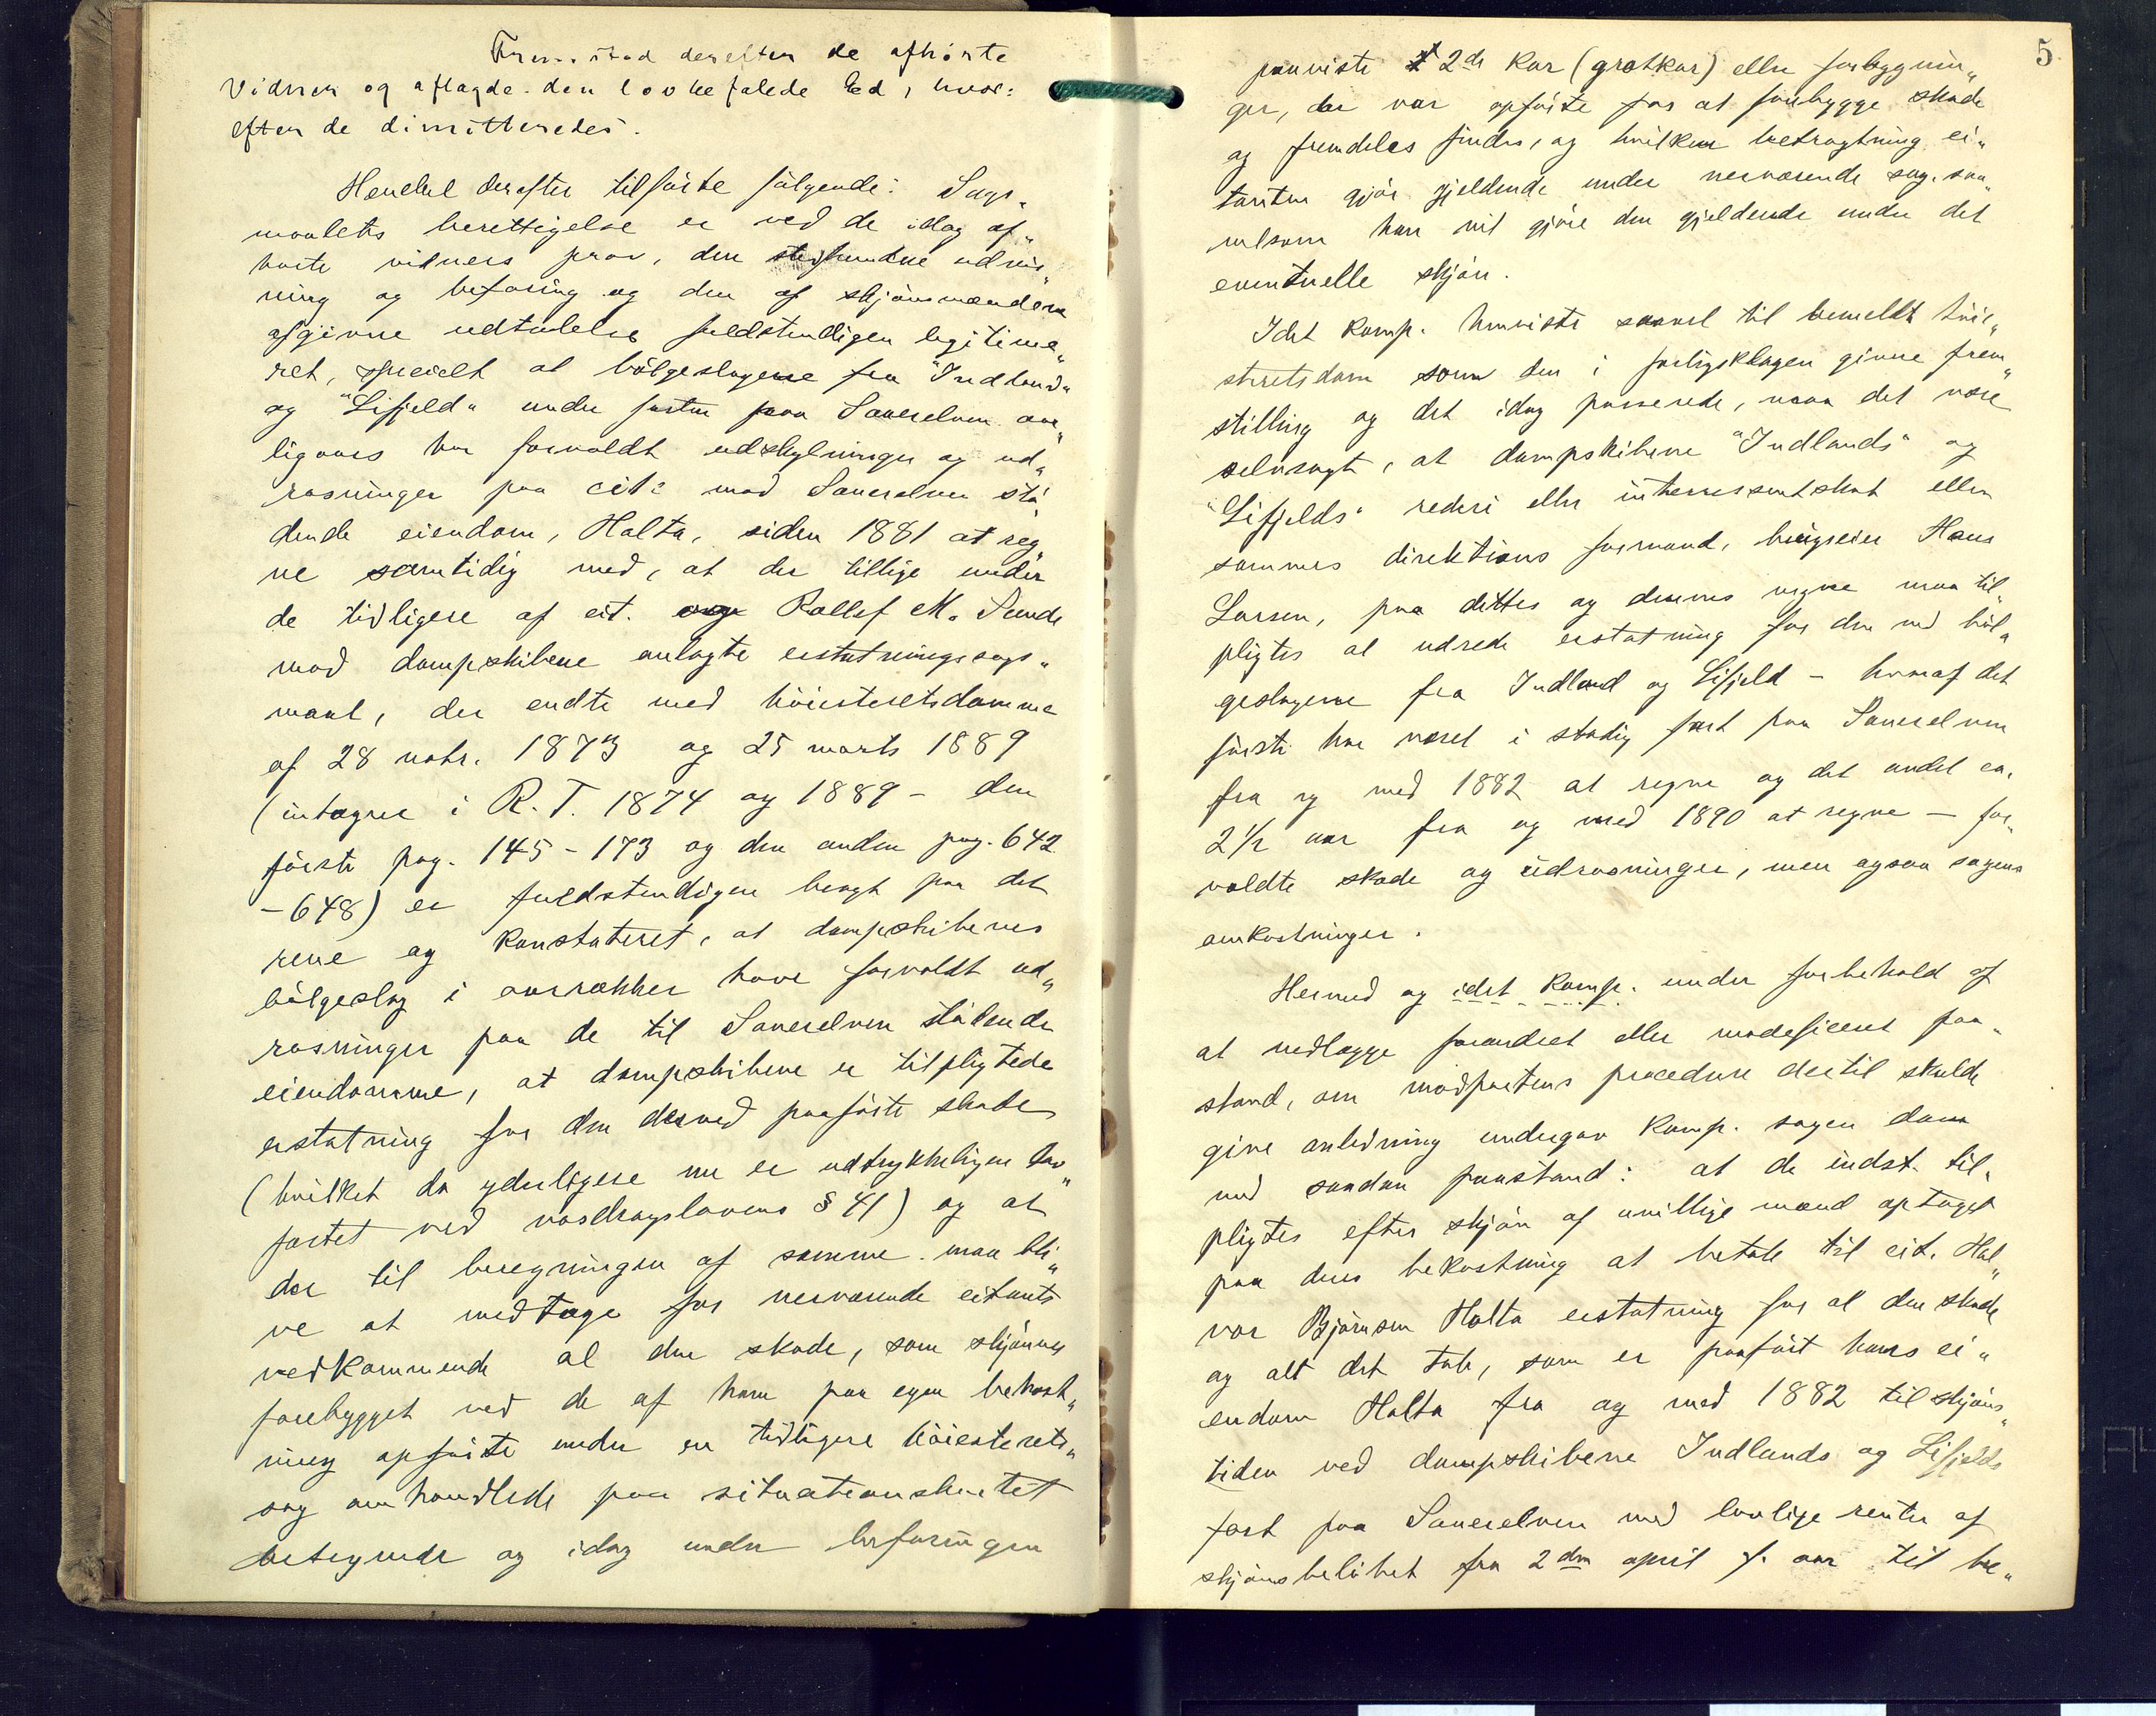 Fremstod derefter de afhørte
Vidner og aflagde den lovbefalede Ed, hvor:
efter de dimitteredes.
Henckel derefter tilførte følgende: Sags„
maalets berettigelse er ved de idag af„
hørte vidners prov, den stedfundne udvis„
ning og befaring og den af skjønsmændene
afgivne udtalelse fuldstendigen legitime„
ret, specielt at bølgeslagene fra "Indland"
og "Lifjeld" under farten paa Sauerelven aar„
ligaars har forvoldt udskylninger og ud„
rasninger paa cit: mod Sauerelven stø„
dende eiendom, Holta, siden 1881 at reg„
ne samtidig med, at der tillige under
de tidligere af cit. og Rollef M. Sunde
mod dampskibene anlagte erstatningssags„
maal, der endte med høiesteretsdomme
af 28 novbr. 1873 og 25 marts 1889
(intagne i R.T. 1874 og 1889 - den
første pag. 145-173 og den anden pag. 642
-648) er fuldstendigen bragt paa det
rene og konstateret, at dampskibenes
bølgeslag i aarrækker have forvoldt ud„
rasninger paa de til Sauerelven stødende
eiendomme, at dampskibene er tilpligtede
erstatning for den derved paaførte skade
(hvilket da yderligere nu er udtrykkeligen lov„
festet ved vasdragslovens § 41) og at
der til beregningen af samme maa bli„
ve at medtage for nerværende citants
vedkommende al den skade, som skjønnes
forebygget ved de af ham paa egen bekost„
ning opførte under en tidligere høiesterets„
sag omhandlede paa situationskartet
betegnede og idag under befaringen
5
paaviste 2de kar (grøtkar) eller forbygnin„
ger, der var opførte for at forebygge skade
og fremdeles findes, og hvilken betragtning ci„
tanten gjør gjeldende under nerværende sag, saa„
velsom han vil gjøre den gjeldende under det
eventuelle skjøn.
Idet komp. henviste saavel til bemeldt høie„
steretsdom som den i forligsklagen givne frem„
stilling og det idag passerede, maa det være
selvsagt, at dampskibene "Indlands" og
"Lifjelds" rederi eller interessentskab eller
sammes direktions formand, brugseier Hans
Larsen, paa dettes og dennes vegne maa til„
pligtes at udrede erstatning for den ved bøl„
geslagene fra Indland og Lifjeld - hvoraf det
første har været i stadig fart paa Sauerelven
fra og med 1882 at regne og det andet ca.
2½ aar fra og med 1890 at regne - for„
voldte skade og udrasninger, men ogsaa sagens
omkostninger.
Hermed og idet komp. under forbehold af
at nedlægge forandret eller modeficeret paa„
stand, om modpartens procedure dertil skulde
give anledning undergav komp. sagen dom
med saadan paastand: at de indst. til„
pligtes efter skjøn af uvillige mænd optaget
paa deres bekostning at betale til cit. Hal„
vor Bjørnsen Holta erstatning for al den skade
og alt det tab, som er paaført hans ei„
endom Holta fra og med 1882 til skjøns„
tiden ved dampskibene Indlands og Lifjelds
fart paa Sauerelven med lovlige renter af
skjønsbeløbet fra 2den april f. aar til be„